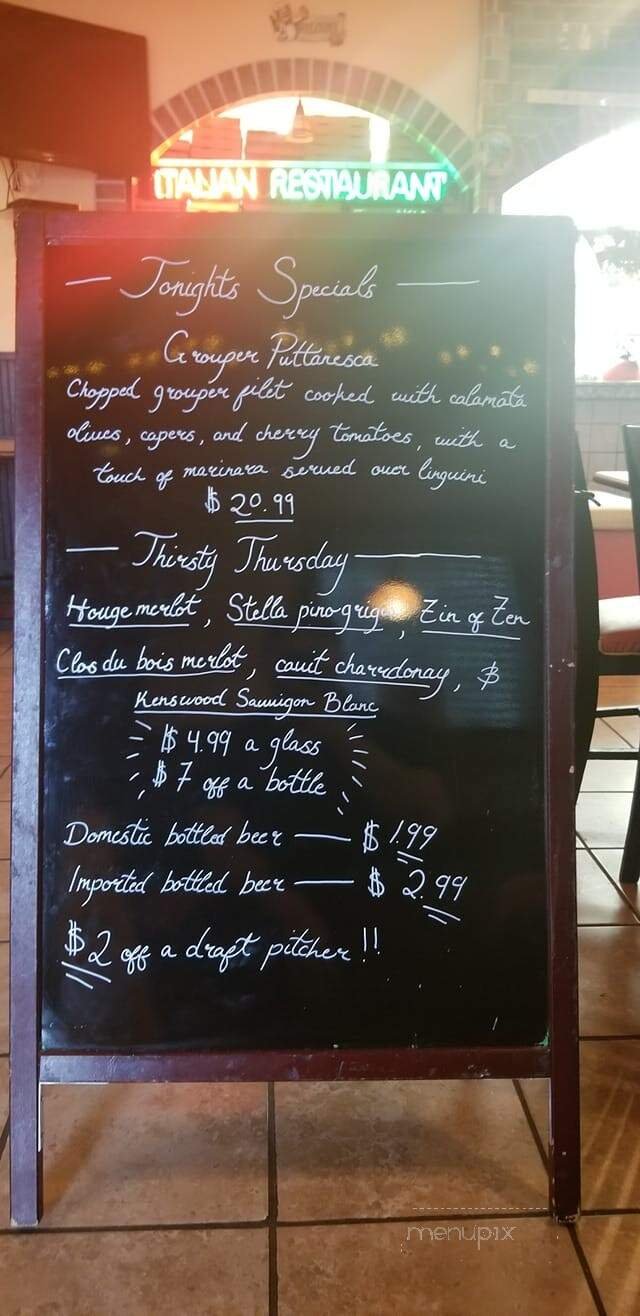 ITALIAN RESTAURANT
— Tonights Specials —
Grouper Puttanesca
Chopped grouper filet cooked with calamata
olives, capers, and cherry tomatoes, with a
touch of marinara served over linguini
$ 20.99
— Thirsty Thursday —
Houge merlot, Stella pino grigio, Zin of Zen
Clos du bois merlot, cavit charrdonay, $
Kenswood Sauvigon Blanc
$ 4.99 a glass
$ 7 off a bottle
Domestic bottled beer — $ 1.99
Imported bottled beer — $ 2.99
$2 off a draft pitcher!!
menupix